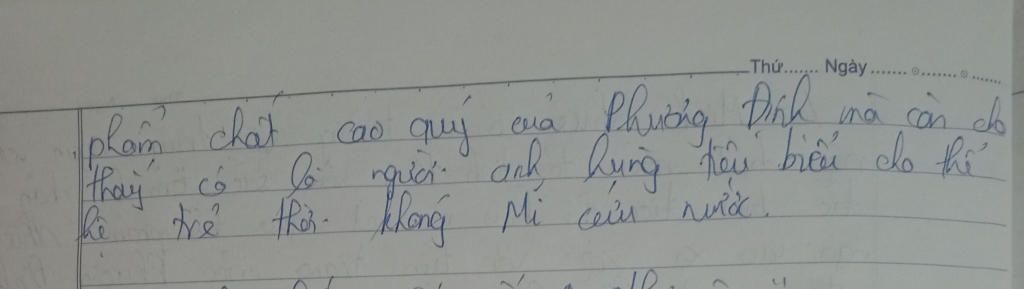 Thứ....... Ngày.......................
phẩm chất cao quý của Phương Định mà còn cho
thấy cô là người anh hùng tiêu biểu cho thế
hệ trẻ thời kháng Mĩ cứu nước.